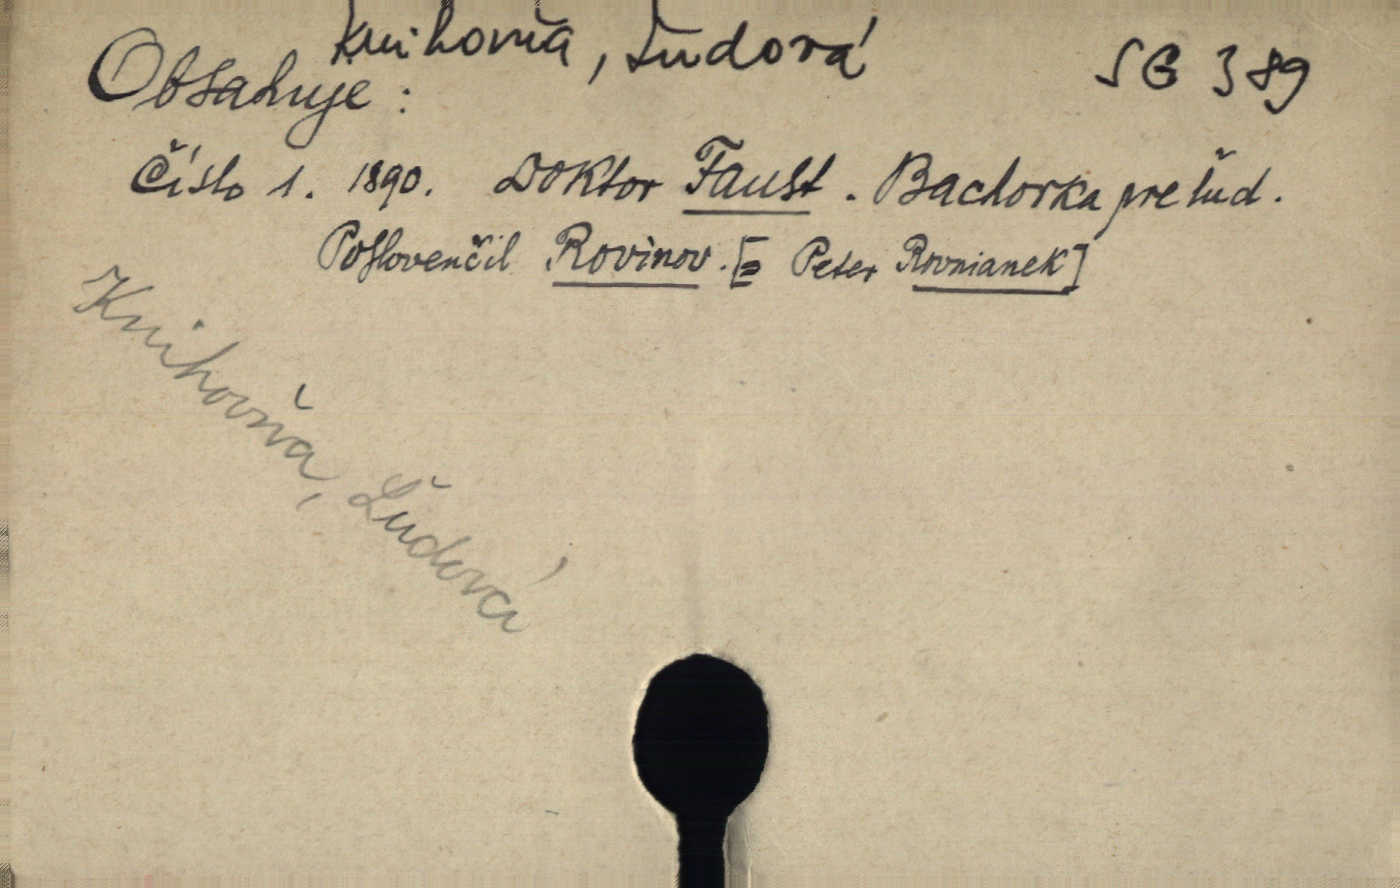 Knihovňa, Ľudová
SG 389
Obsahuje:
Číslo 1. 1890. Doktor Faust. Bachorka pre ľud.
Poslovenčil Rovinov. [= Peter Rovnianek]
Knihovňa, Ľudová